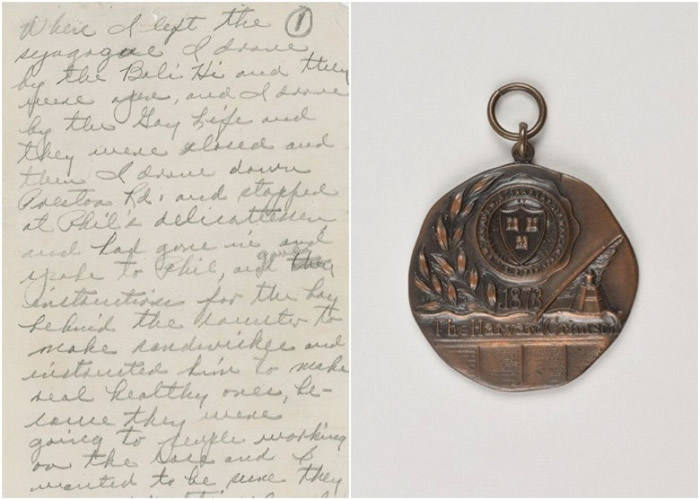 1
When I left the
synagogue I drove
by the Bali Hi and they
were open, and I drove
by the Gay Life and
they were closed and
then I drove down
Preston Rd, and stopped
at Phil's delicatessen
and had gone in and
spoke to Phil, and gave
instructions for the boy
behind the counter to
make sandwiches and
instructed him to make
real healthy ones, be-
cause they were
going to people working
on the case and I
wanted to be sure they
1873
The Harvard Crimson